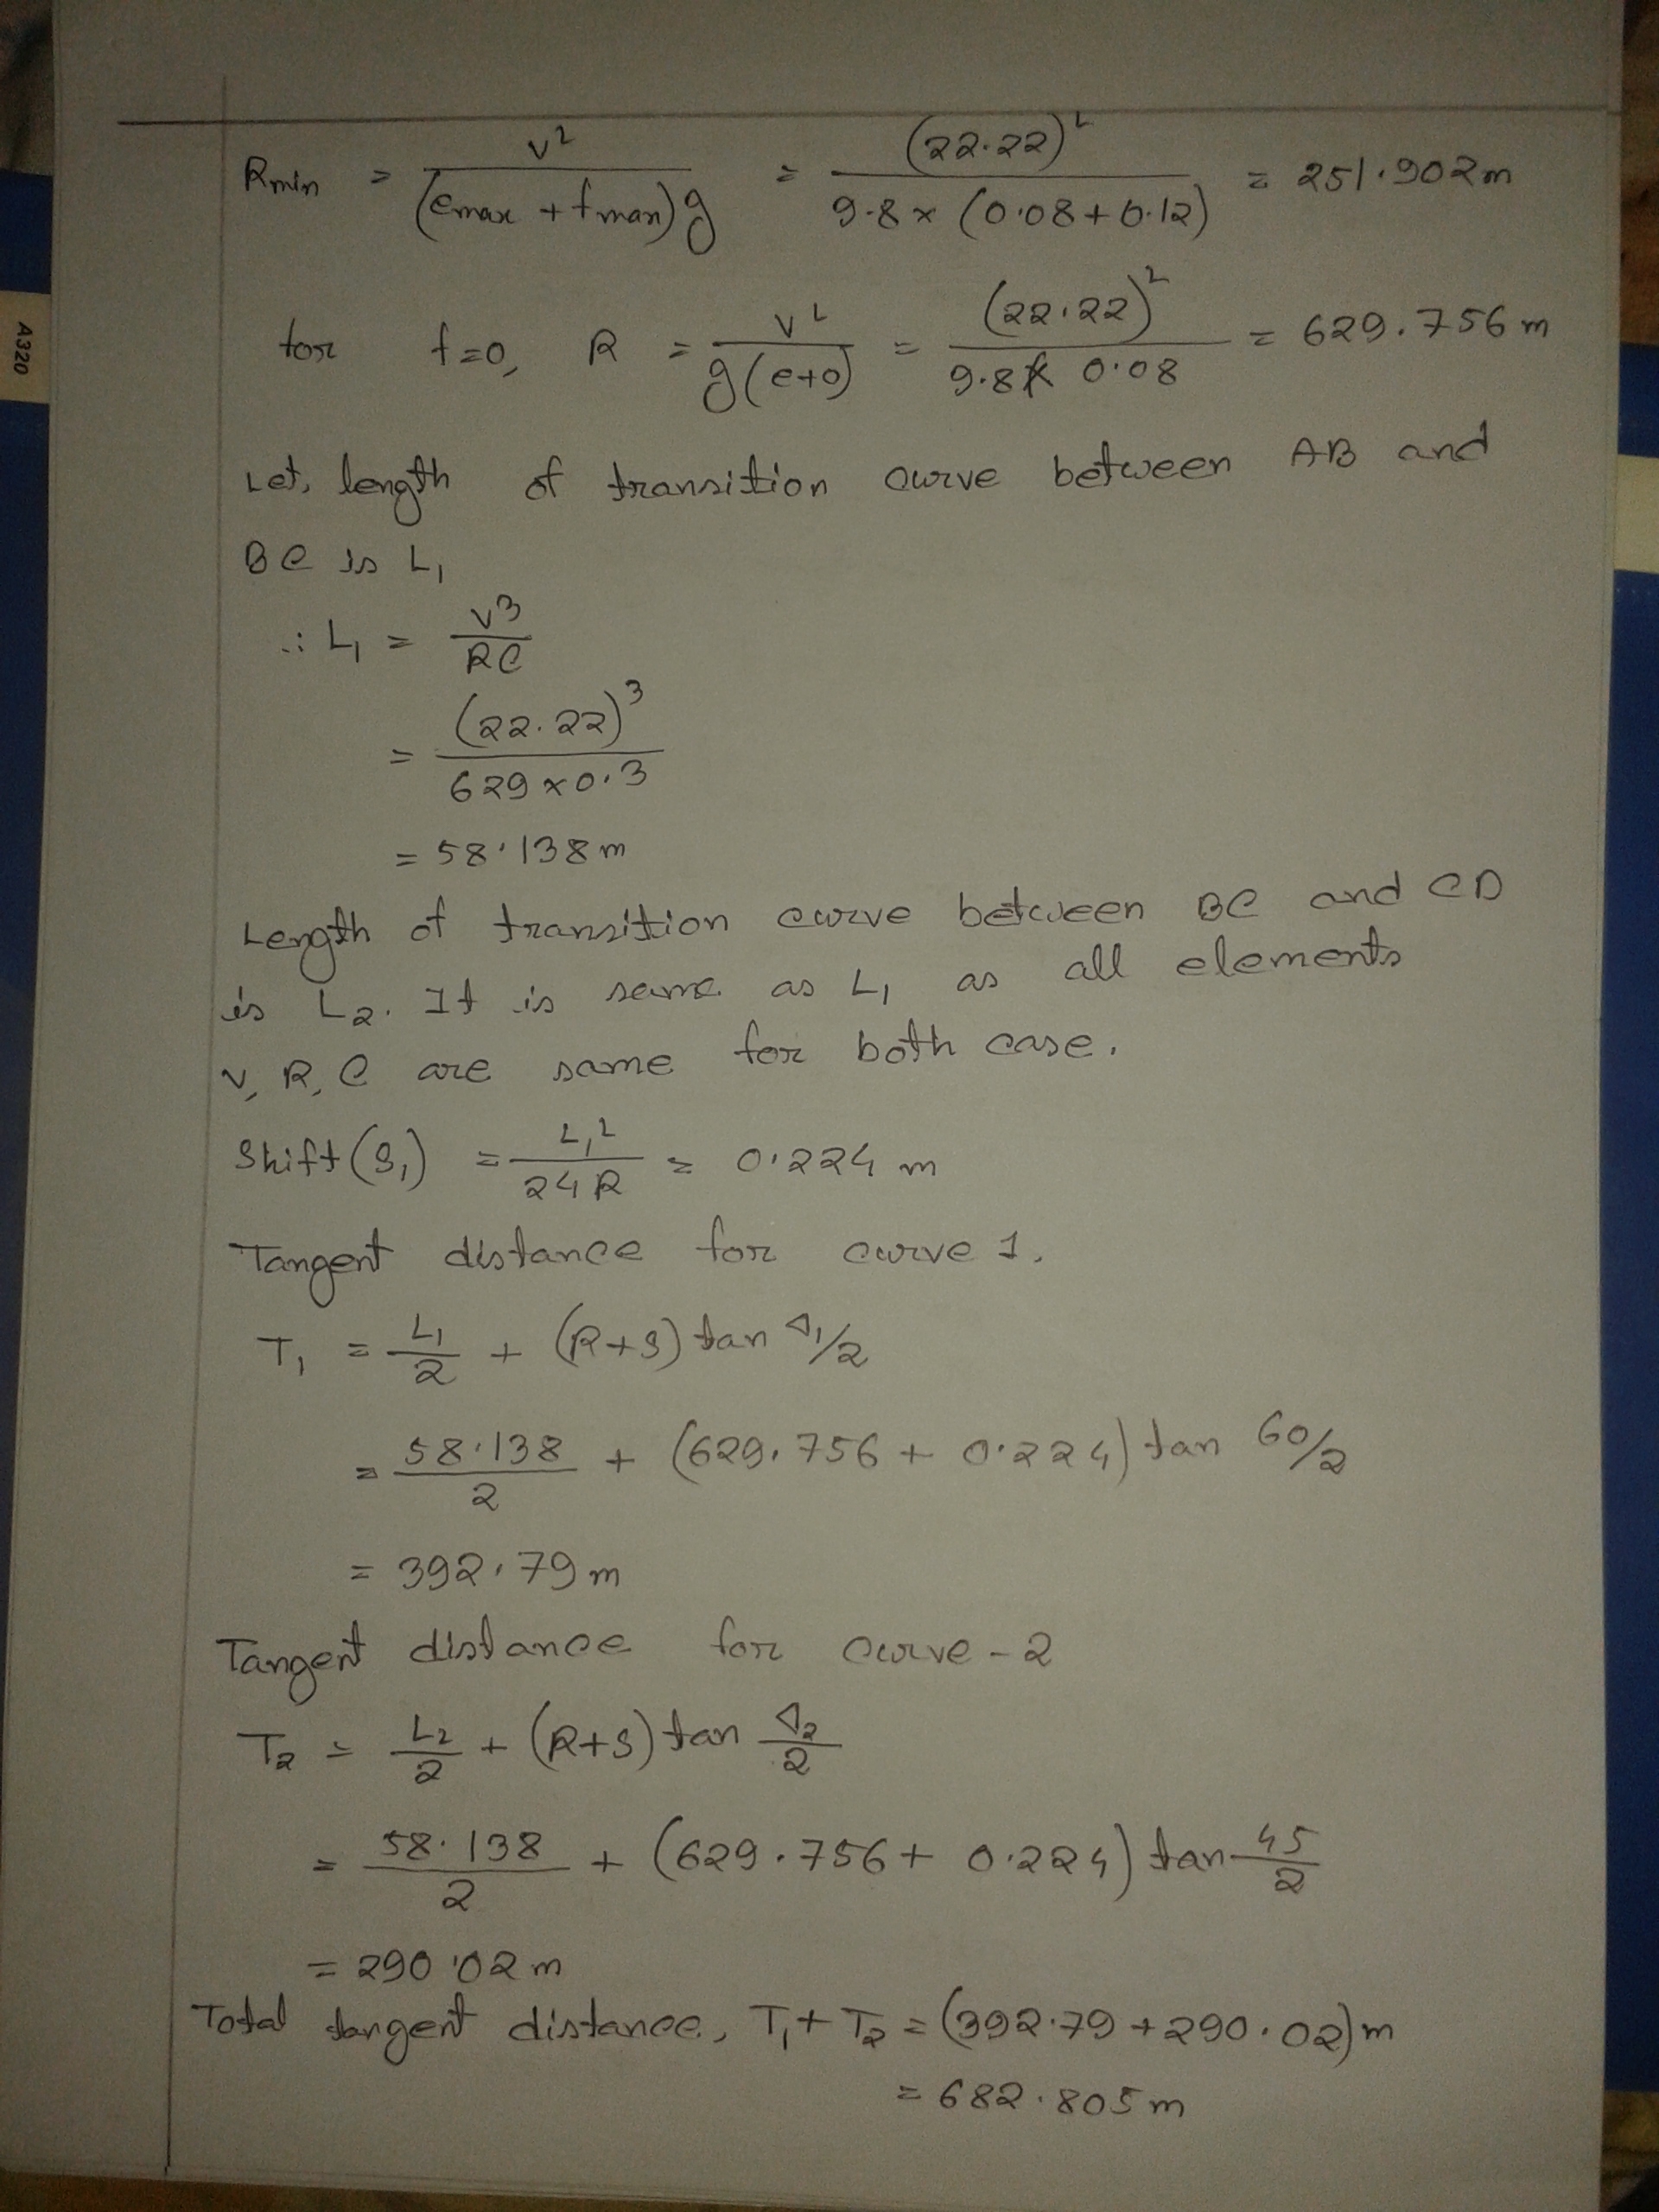 Rmin = v² / (emax + fmax)g = (22.22)² / 9.8 × (0.08+0.12) = 251.902m
for f=0, R = v² / g(e+0) = (22.22)² / 9.8 × 0.08 = 629.756 m
Let, length of transition curve between AB and
BC is L₁
∴ L₁ = v³ / RC
= (22.22)³ / 629 × 0.3
= 58.138 m
Length of transition curve between BC and CD
is L₂. It is same as L₁ as all elements
v, R, C are same for both case.
Shift (S₁) = L₁² / 24R = 0.224 m
Tangent distance for curve 1.
T₁ = L₁/2 + (R+S) tan Δ₁/2
= 58.138/2 + (629.756 + 0.224) tan 60/2
= 392.79 m
Tangent distance for curve-2
T₂ = L₂/2 + (R+S) tan Δ₂/2
= 58.138/2 + (629.756 + 0.224) tan 45/2
= 290.02 m
Total tangent distance, T₁ + T₂ = (392.79 + 290.02) m
= 682.805 m
A320